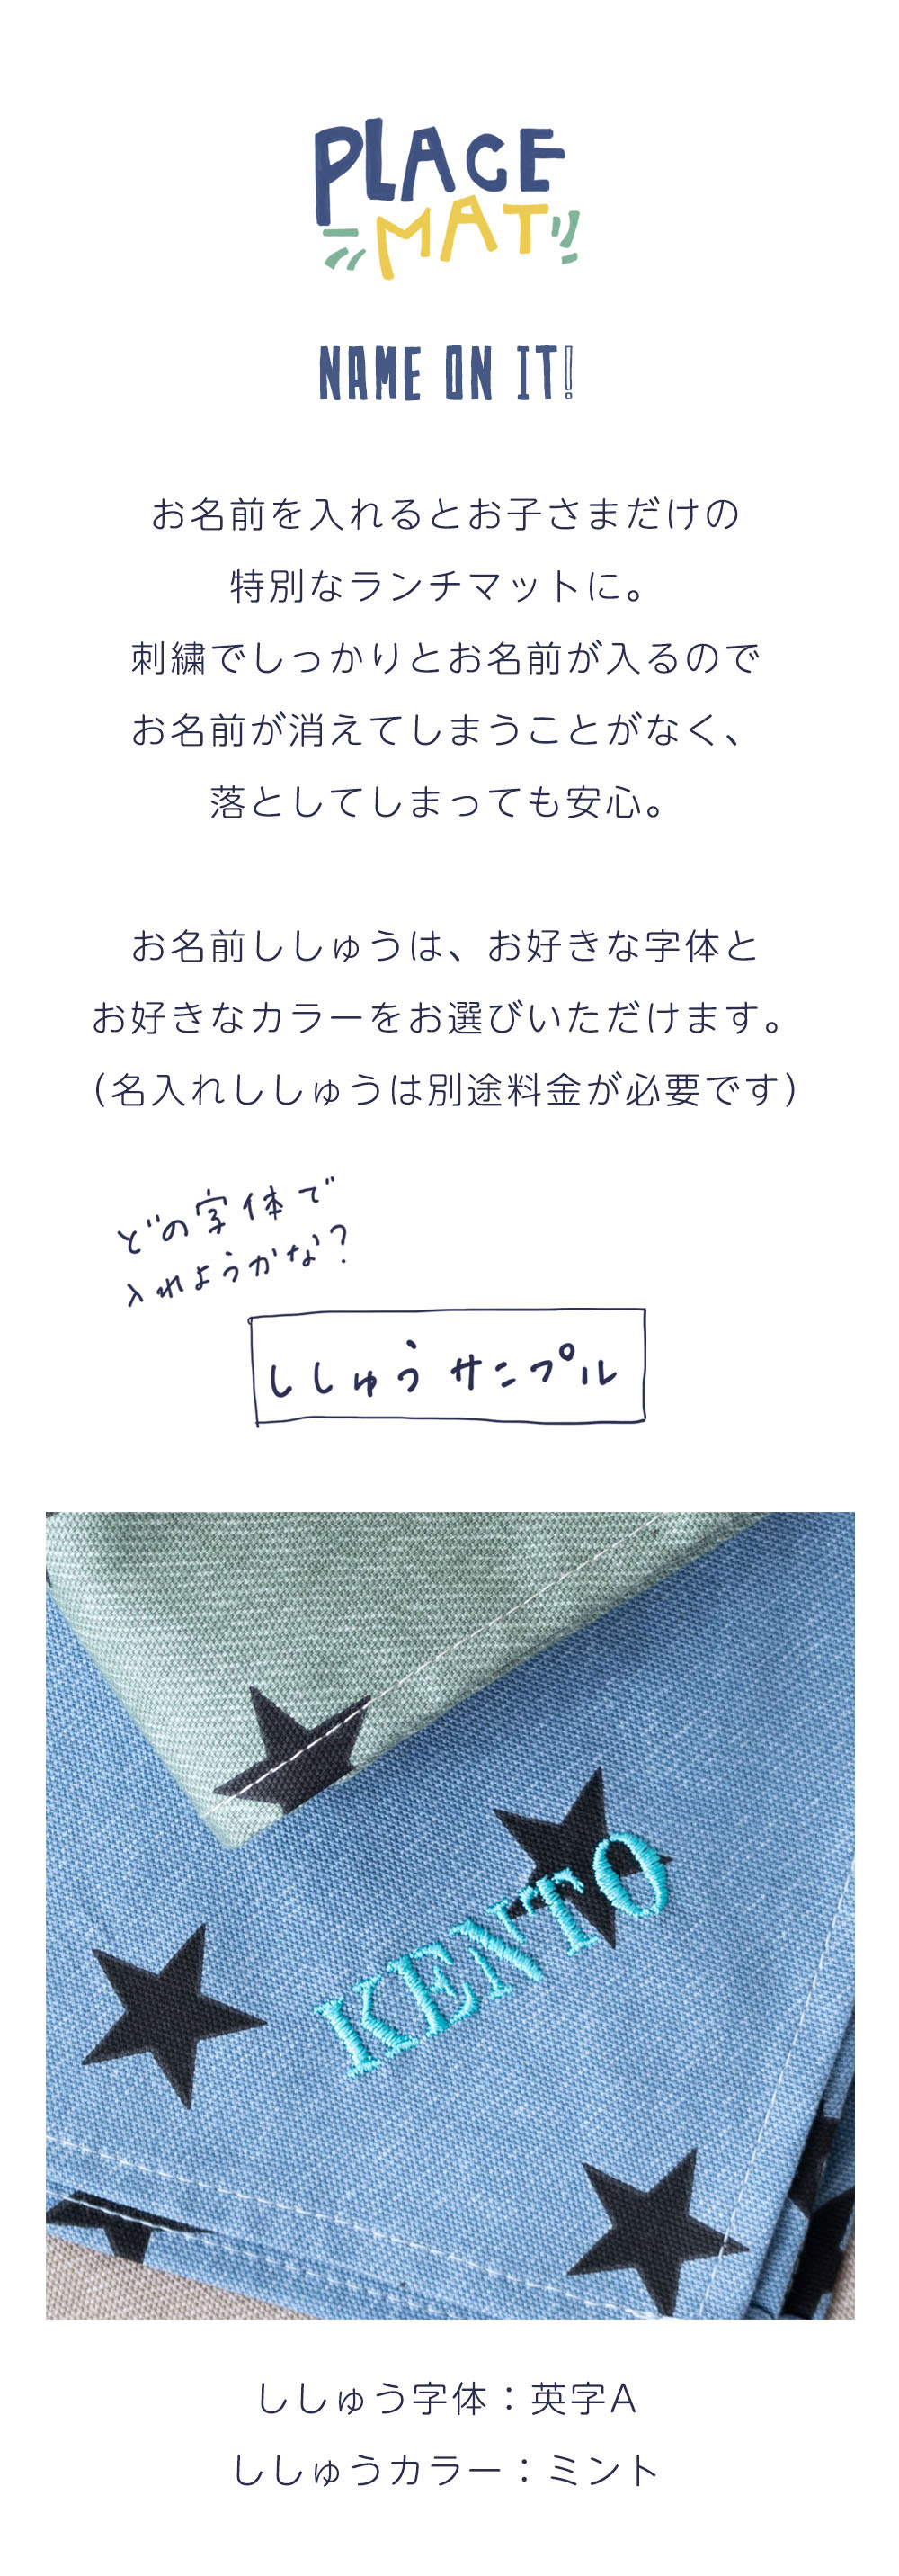 PLACE
MAT
NAME ON IT!
お名前を入れるとお子さまだけの
特別なランチマットに。
刺繍でしっかりとお名前が入るので
お名前が消えてしまうことがなく、
落としてしまっても安心。
お名前ししゅうは、お好きな字体と
お好きなカラーをお選びいただけます。
(名入れししゅうは別途料金が必要です)
どの字体で
入れようかな?
ししゅうサンプル
KENTO
ししゅう字体：英字A
ししゅうカラー：ミント